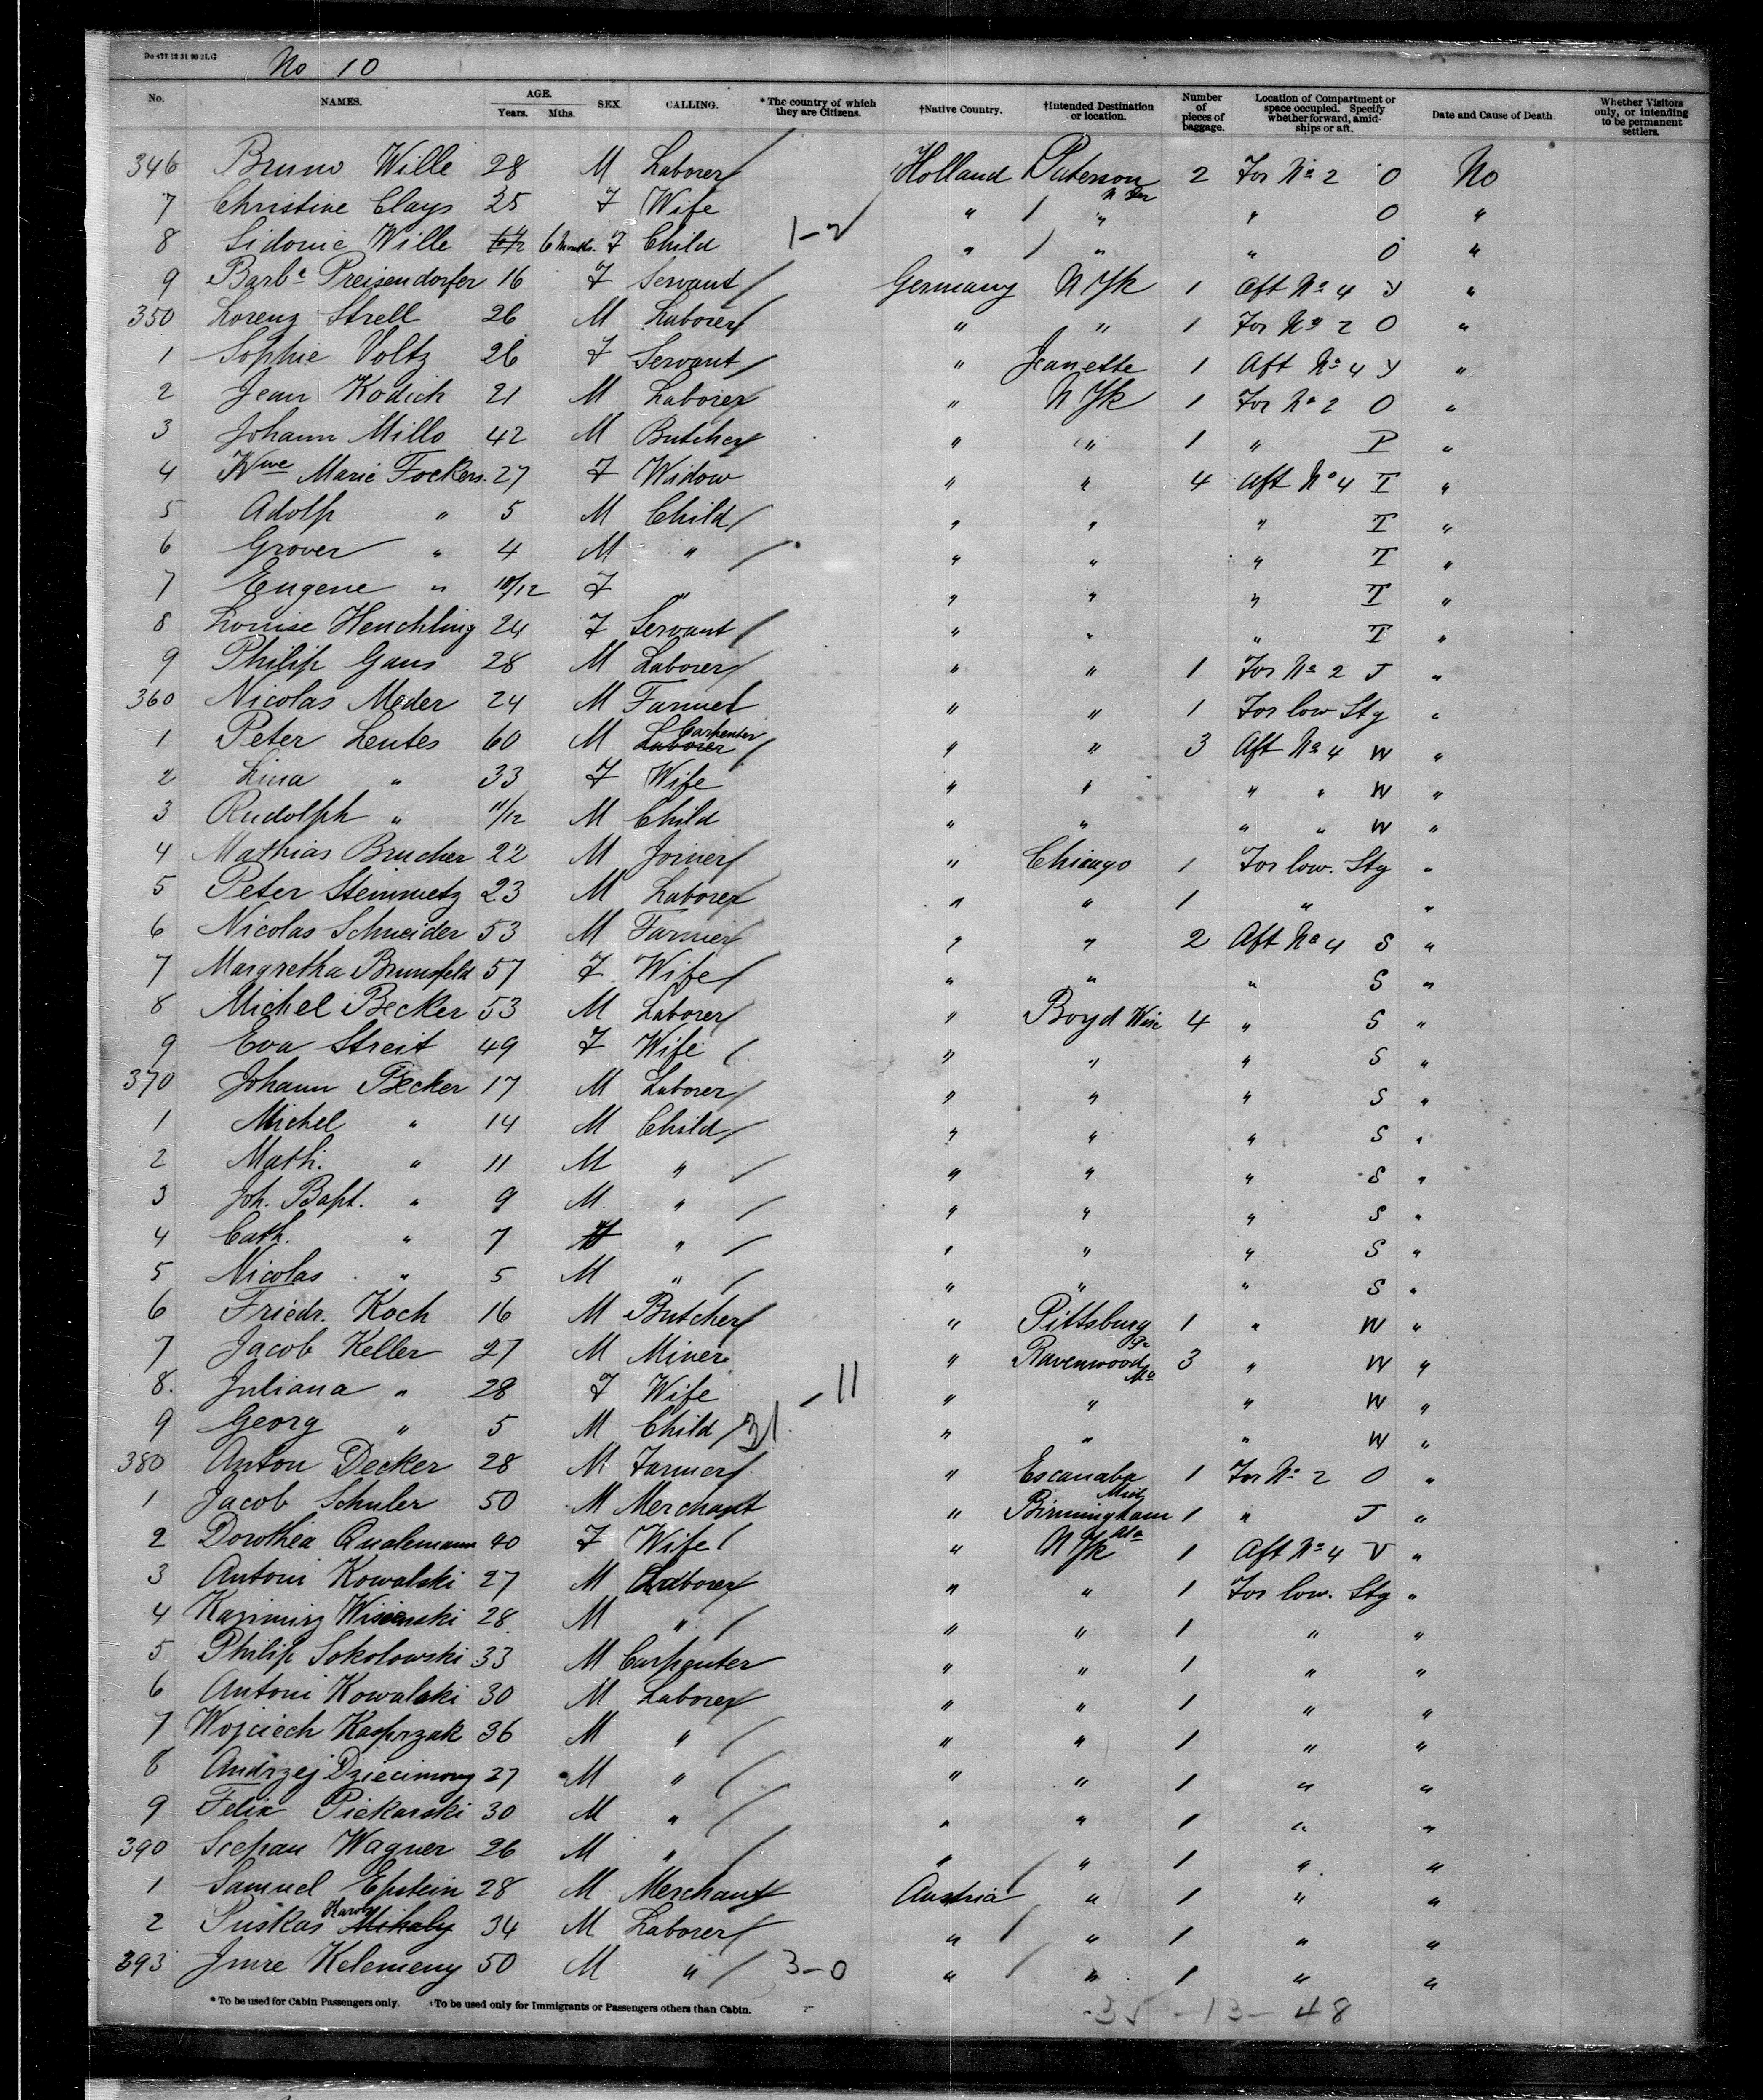 Do 477 12 31 90 2LG
No 10
No. NAMES. AGE. Years. Mths. SEX. CALLING. *The country of which they are Citizens. †Native Country. †Intended Destination or location. Number of pieces of baggage. Location of Compartment or space occupied. Specify whether forward, amidships or aft. Date and Cause of Death Whether Visitors only, or intending to be permanent settlers.
346 Bruno Wille 28 M Laborer Holland Paterson N Jer 2 For No 2 O No
7 Christine Clays 25 F Wife " " " O "
8 Sidonie Wille 6 Months. F Child 1-2 " " " O "
9 Barba Preisendorfer 16 F Servant Germany N Yk 1 Aft No 4 Y "
350 Lorenz Strell 26 M Laborer " " 1 For No 2 O "
1 Sophie Voltz 26 F Servant " Jeanette 1 Aft No 4 Y "
2 Jean Kodich 21 M Laborer " N Yk 1 For No 2 O "
3 Johann Millo 42 M Butcher " " 1 " P "
4 Wwe Marie Fockers. 27 F Widow " " 4 Aft No 4 T "
5 Adolf " 5 M Child " " " T "
6 Grover " 4 M " " " " T "
7 Eugene " 10/12 F " " " " T "
8 Louise Henchling 24 F Servant " " " T "
9 Philip Gans 28 M Laborer " " 1 For No 2 J "
360 Nicolas Meder 24 M Farmer " " 1 For low Stg "
1 Peter Lentes 60 M Laborer Carpenter " " 3 Aft No 4 W "
2 Lina " 33 F Wife " " " " W "
3 Rudolph " 11/12 M Child " " " " W "
4 Mathias Brucher 22 M Joiner " Chicago 1 For low. Stg "
5 Peter Steinmetz 23 M Laborer " " 1 " "
6 Nicolas Schneider 53 M Farmer " " 2 Aft No 4 S "
7 Margretha Brunsfeld 57 F Wife " " " S "
8 Michel Becker 53 M Laborer " Boyd Wisc 4 " S "
9 Eva Streit 49 F Wife " " " S "
370 Johann Becker 17 M Laborer " " " S "
1 Michel " 14 M Child " " " S "
2 Math. " 11 M " " " " S "
3 Joh. Bapt. " 9 M " " " " S "
4 Cath. " 7 " " " " S "
5 Nicolas " 5 M " " " " S "
6 Friedr. Koch 16 M Butcher " Pittsburg Pa 1 " W "
7 Jacob Keller 27 M Miner " Ravenwood Mo 3 " W "
8. Juliana " 28 F Wife 11 " " " W "
9 Georg " 5 M Child 31 " " " W "
380 Anton Decker 28 M Farmer " Escanaba Mich 1 For No 2 O "
1 Jacob Schuler 50 M Merchant " Birmingham Ala 1 " J "
2 Dorothea Qualemann 40 F Wife " N Yk 1 Aft No 4 V "
3 Antoni Kowalski 27 M Laborer " " 1 For low. Stg "
4 Kazimirz Wisienski 28 M " " " 1 " "
5 Philip Sokolowski 33 M Carpenter " " 1 " "
6 Antoni Kowalski 30 M Laborer " " 1 " "
7 Wojciech Kasprzak 36 M " " " 1 " "
8 Andrzej Dziecimony 27 M " " " 1 " "
9 Felix Piekarski 30 M " " " 1 " "
390 Scepan Wagner 26 M " " " 1 " "
1 Samuel Epstein 28 M Merchant Austria " 1 " "
2 Puskas Mihaly Karoly 34 M Laborer " " 1 " "
393 Imre Kelemeny 50 M " 3-0 " " 1 " "
*To be used for Cabin Passengers only. †To be used only for Immigrants or Passengers others than Cabin.
35 - 13 - 48